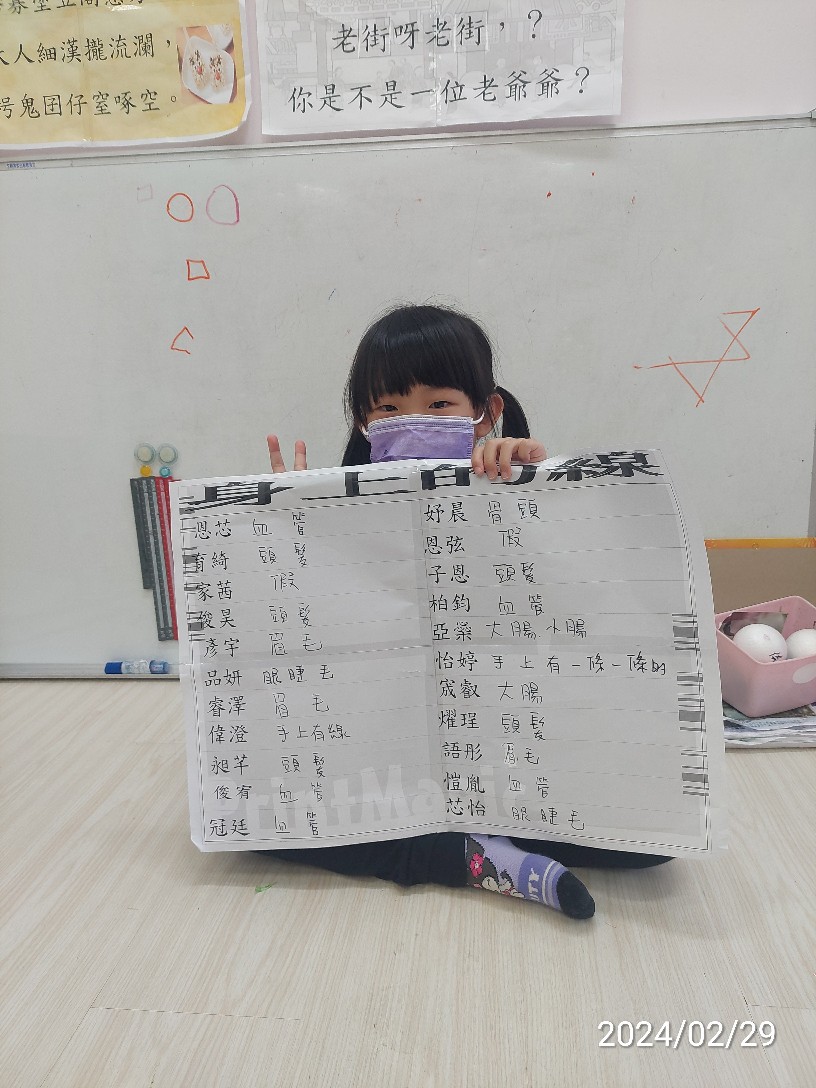 大人細漢攏流瀾，
鬼囝仔窒啄空。
老街呀老街，？
你是不是一位老爺爺？
身上的線
恩芯 血管
育綺 頭髮
家茜 假
俊昊 頭髮
彥宇 眉毛
品妍 眼睫毛
睿澤 眉毛
偉澄 手上有線
昶芊 頭髮
俊宥 血管
冠廷 血管
妤晨 骨頭
恩弦 假
子恩 頭髮
柏鈞 血管
亞燊 大腸、小腸
怡婷 手上有一條一條的
宬叡 大腸
燿珵 頭髮
語彤 眉毛
愷胤 血管
芯怡 眼睫毛
2024/02/29